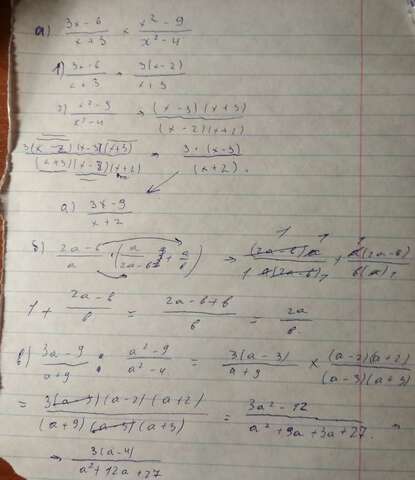 а) (3x-6)/(x+3) × (x²-9)/(x²-4)
1) (3x-6)/(x+3) = 3(x-2)/(x+3)
2) (x²-9)/(x²-4) = (x-3)(x+3)/((x-2)(x+2))
3(x-2)(x-3)(x+3)/((x+3)(x-2)(x+2)) = 3·(x-3)/(x+2).
а) (3x-9)/(x+2)
б) (2a-b)/a · (a/(2a-b) + a/b) → (2a-b)a/(a(2a-b)) + a(2a-b)/(b(a))
1 + (2a-b)/b = (2a-b+b)/b = 2a/b.
в) (3a-9)/(a+9) : (a²-9)/(a²-4) = 3(a-3)/(a+9) × (a-2)(a+2)/((a-3)(a+3))
= 3(a-3)(a-2)(a+2)/((a+9)(a-3)(a+3)) = (3a²-12)/(a²+9a+3a+27) .
→ 3(a-4)/(a²+12a+27)